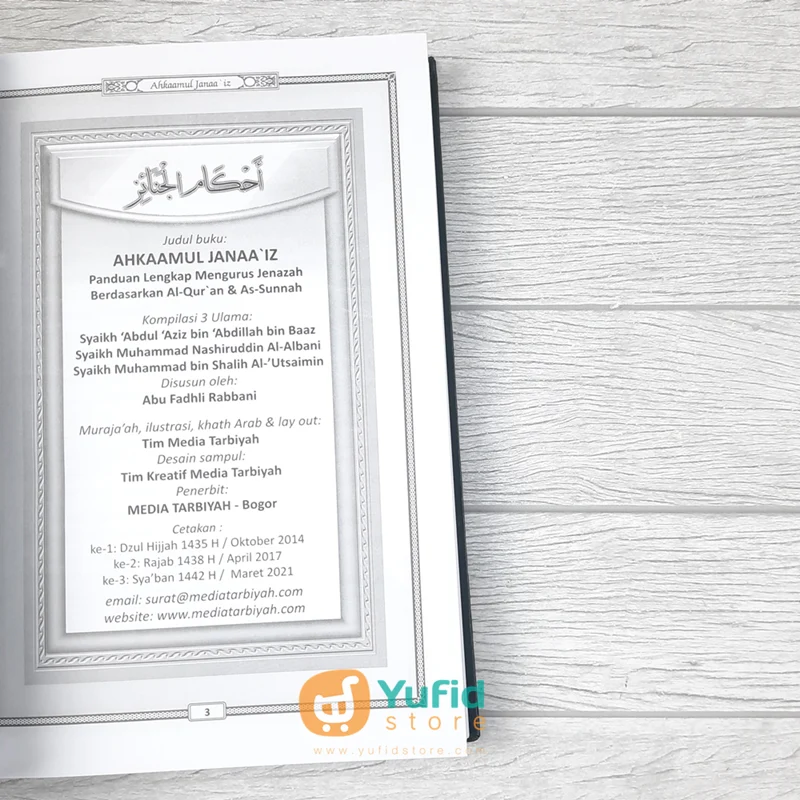 Ahkaamul Janaa`iz
أَحْكَام الْجَنَائِز
Judul buku:
AHKAAMUL JANAA`IZ
Panduan Lengkap Mengurus Jenazah
Berdasarkan Al-Qur`an & As-Sunnah
Kompilasi 3 Ulama:
Syaikh ‘Abdul ‘Aziz bin ‘Abdillah bin Baaz
Syaikh Muhammad Nashiruddin Al-Albani
Syaikh Muhammad bin Shalih Al-’Utsaimin
Disusun oleh:
Abu Fadhli Rabbani
Muraja’ah, ilustrasi, khath Arab & lay out:
Tim Media Tarbiyah
Desain sampul:
Tim Kreatif Media Tarbiyah
Penerbit:
MEDIA TARBIYAH - Bogor
Cetakan :
ke-1: Dzul Hijjah 1435 H / Oktober 2014
ke-2: Rajab 1438 H / April 2017
ke-3: Sya’ban 1442 H / Maret 2021
email: surat@mediatarbiyah.com
website: www.mediatarbiyah.com
3
Yufid
store
www.yufidstore.com